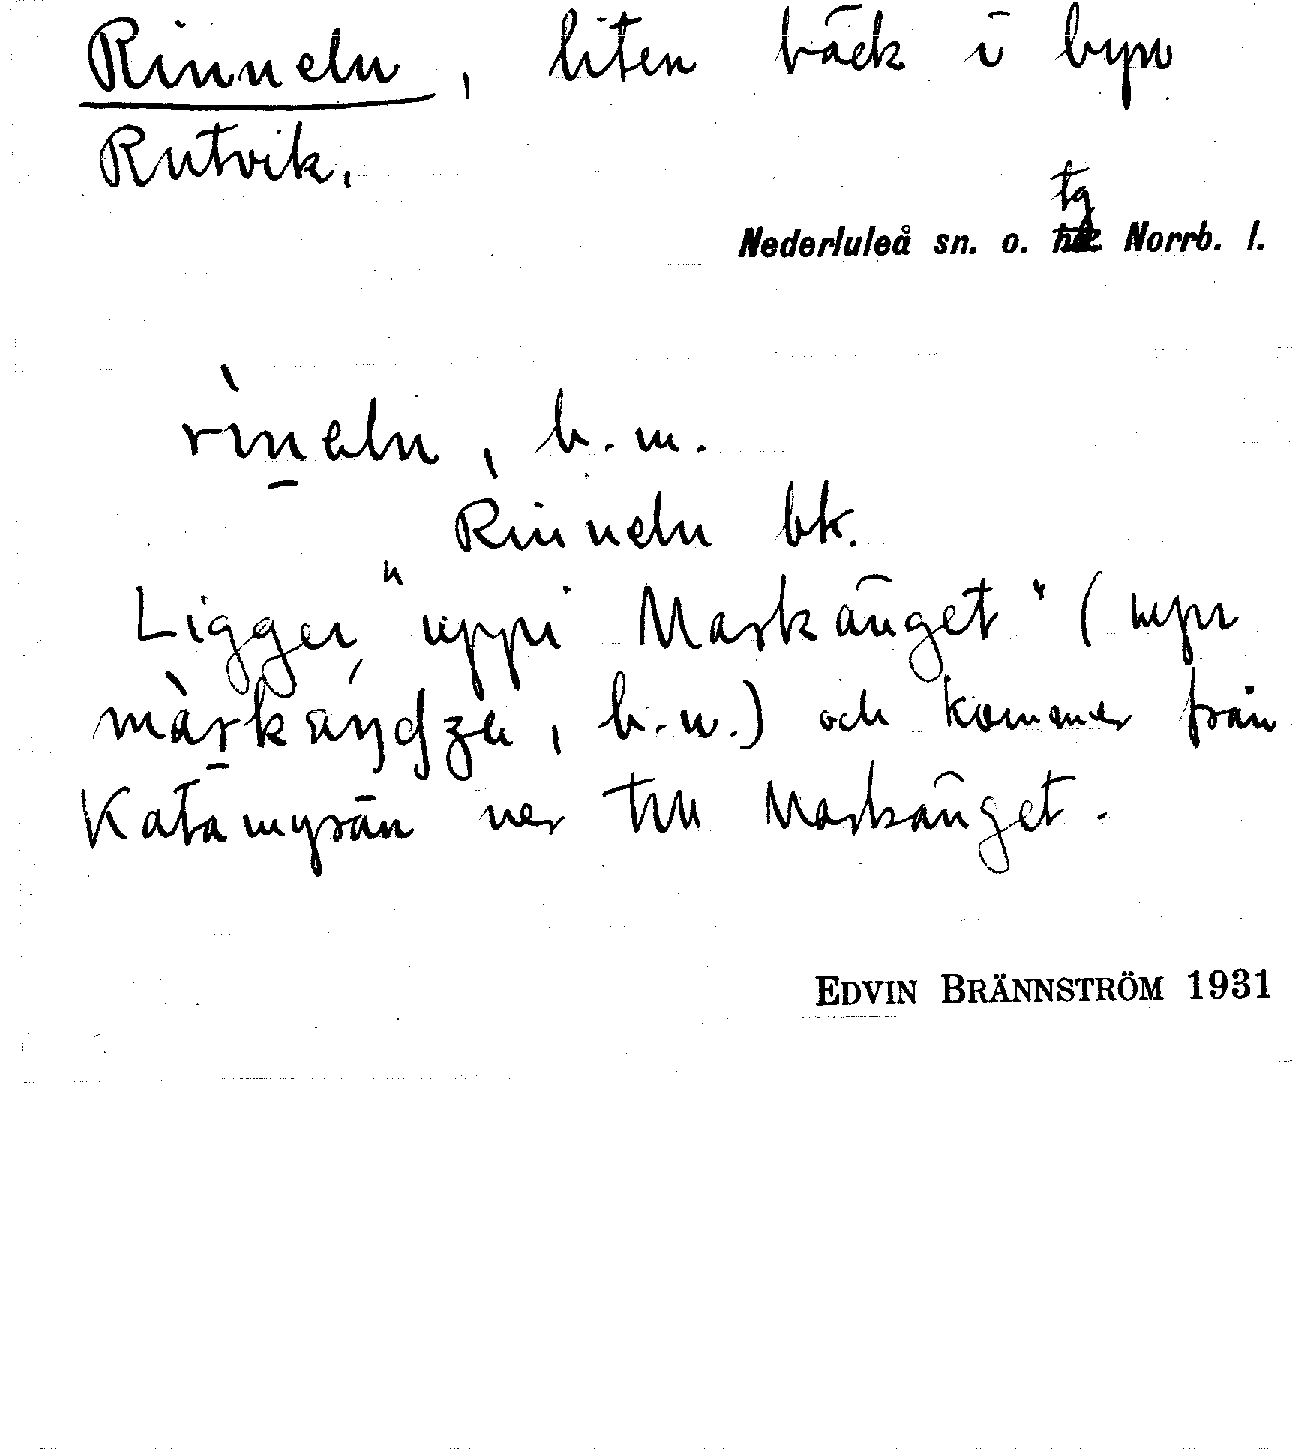 Rinneln, liten bäck i byn
Rutvik.
tg
Nederluleå sn. o. Norrb. l.
rìneln, b.m.
Rinneln bk.
Ligger "uppi Markänget" (upr
b.n.) och kommer från
Katamyrån ner till Markänget.
EDVIN BRÄNNSTRÖM 1931